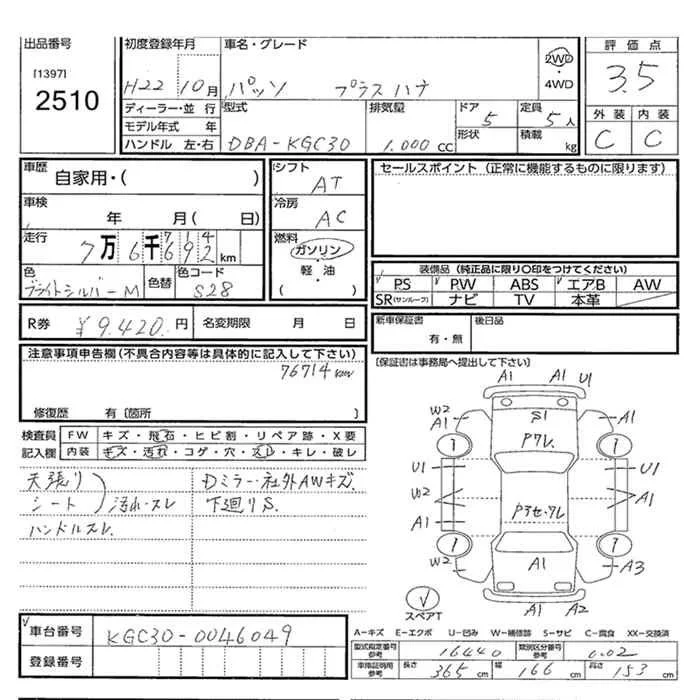 出品番号
[1397]
2510
初度登録年月
H22 10月
車名・グレード
パッソ プラスハナ
2WD
・
4WD
評価点
3.5
外装 内装
C C
ディーラー・並行
モデル年式 年
ハンドル 左・右
型式
DBA-KGC30
排気量
1.000 CC
ドア
5
形状
定員
5人
積載
kg
車歴
自家用・( )
車検
年 月( 日)
走行
7万6千692km
714
色
ブライトシルバーM
色替
色コード
S28
シフト
AT
冷房
AC
燃料
ガソリン
・
軽・油
( )
セールスポイント (正常に機能するものに限ります)
装備品 (純正品に限り〇印をつけてください)
PS PW ABS エアB AW
SR(サンルーフ) ナビ TV 本革
R券 ¥9.420.円
名変期限 月 日
新車保証書
有・無
後日品
[保証書は事務局へ提出して下さい]
注意事項申告欄(不具合内容等は具体的に記入して下さい)
76714km
修復歴 有〔箇所 〕
検査員
記入欄
FW キズ・飛石・ヒビ割・リペア跡・X要
内装 キズ・汚れ・コゲ・穴・スレ・キレ・破レ
天張り
シート
汚れ・スレ
ハンドルスレ.
Dミラー・社外AWキズ.
下廻りS.
A1 A1 U1
W2 A1
S1
A1
Pワレ.
U1 U1
W2 A1
A1
Pアセ・ワレ
W2 A1 A3
A1 A2
スペアT
車台番号 KGC30-0046049
登録番号
A-キズ E-エクボ U-凹み W-補修跡 S-サビ C-腐食 XX-交換済
型式指定番号
参考
16440
類別区分番号
参考
車庫証明用
参考
長さ 365cm 幅 166cm 高さ 153cm